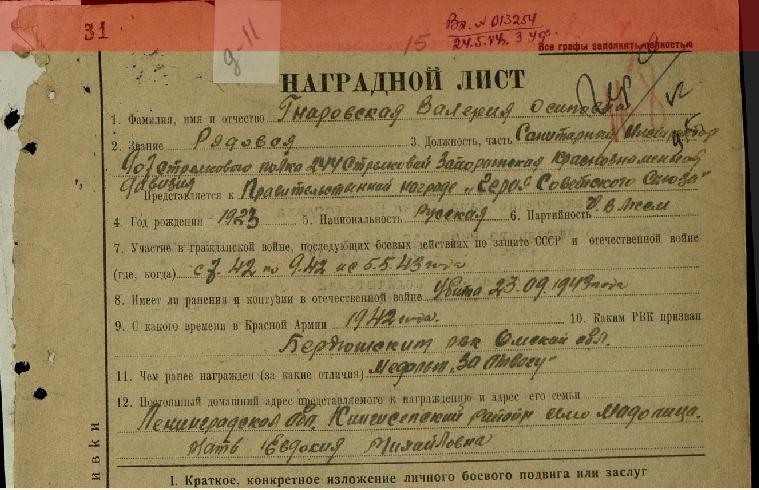 31
g-11
15
Вх. № 013254
24.5.44. 3 уф.
Все графы заполнять полностью
НАГРАДНОЙ ЛИСТ
1. Фамилия, имя и отчество Гнаровская Валерия Осиповна
2. Звание Рядовая 3. Должность, часть Санитарный Инструктор
907 Стрелкового полка 244 Стрелковой Запорожская Краснознаменной
дивизии
Представляется к Правительственной награде „Героя Советского Союза"
4. Год рождения 1923 5. Национальность Русская 6. Партийность
7. Участие в гражданской войне, последующих боевых действиях по защите СССР и отечественной войне
(где, когда) с 7.42 по 9.42 и с 5.5.43 года
8. Имеет ли ранения и контузии в отечественной войне Убита 23.09.1943 года
9. С какого времени в Красной Армии 1942 года. 10. Каким РВК призван
Бердюшским рвк Омской обл.
11. Чем ранее награжден (за какие отличия) Медалью „За Отвагу"
12. Постоянный домашний адрес представляемого к награждению и адрес его семьи
Ленинградская обл. Кингисепский район
Мать Евдокия Михайловна
ивки
I. Краткое, конкретное изложение личного боевого подвига или заслуг